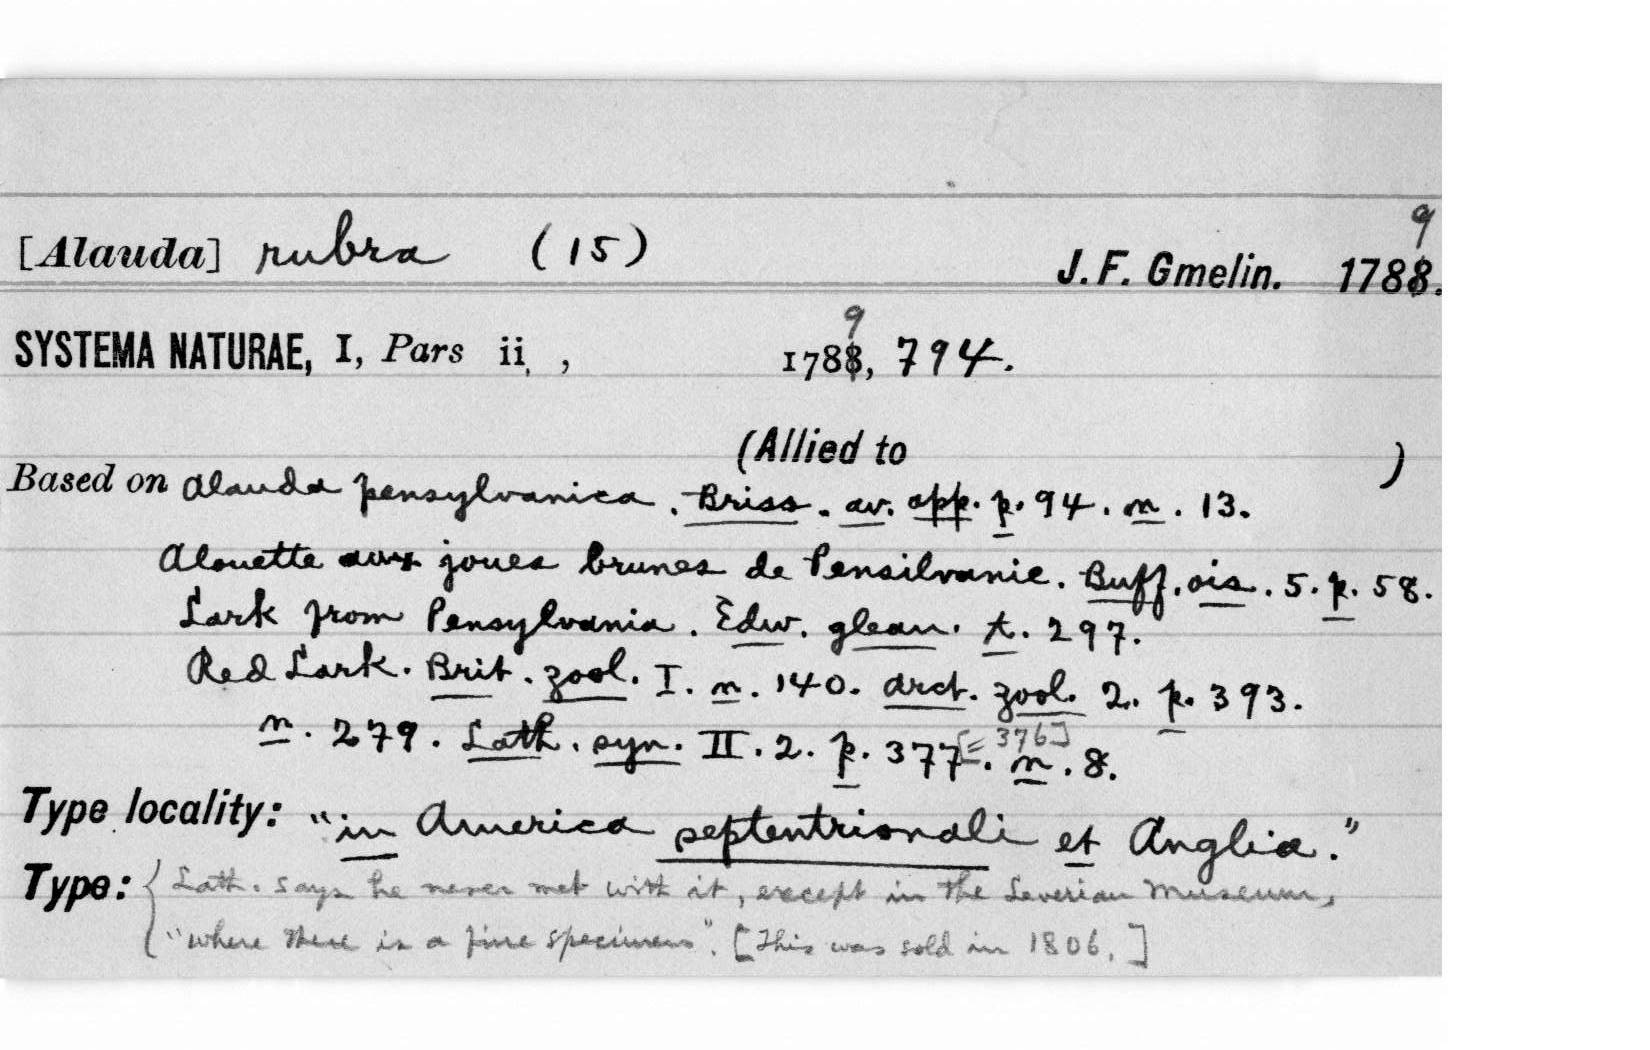 [Alauda] rubra (15)
J. F. Gmelin. 1789.
SYSTEMA NATURAE, I, Pars ii, , 1789, 794.
(Allied to )
Based on Alauda pensylvanica. Briss. av. app. p. 94. n. 13.
Alouette aux joues brunes de Pensilvanie. Buff. ois. 5. p. 58.
Lark from Pensylvania. Edw. glean. t. 297.
Red Lark. Brit. zool. I. n. 140. arct. zool. 2. p. 393.
n. 279. Lath. syn. II. 2. p. 377 [= 376]. n. 8.
Type locality: "in America septentrionali et Anglia."
Type: { Lath. says he never met with it, except in the Leverian Museum,
"where there is a fine specimen". [This was sold in 1806.]